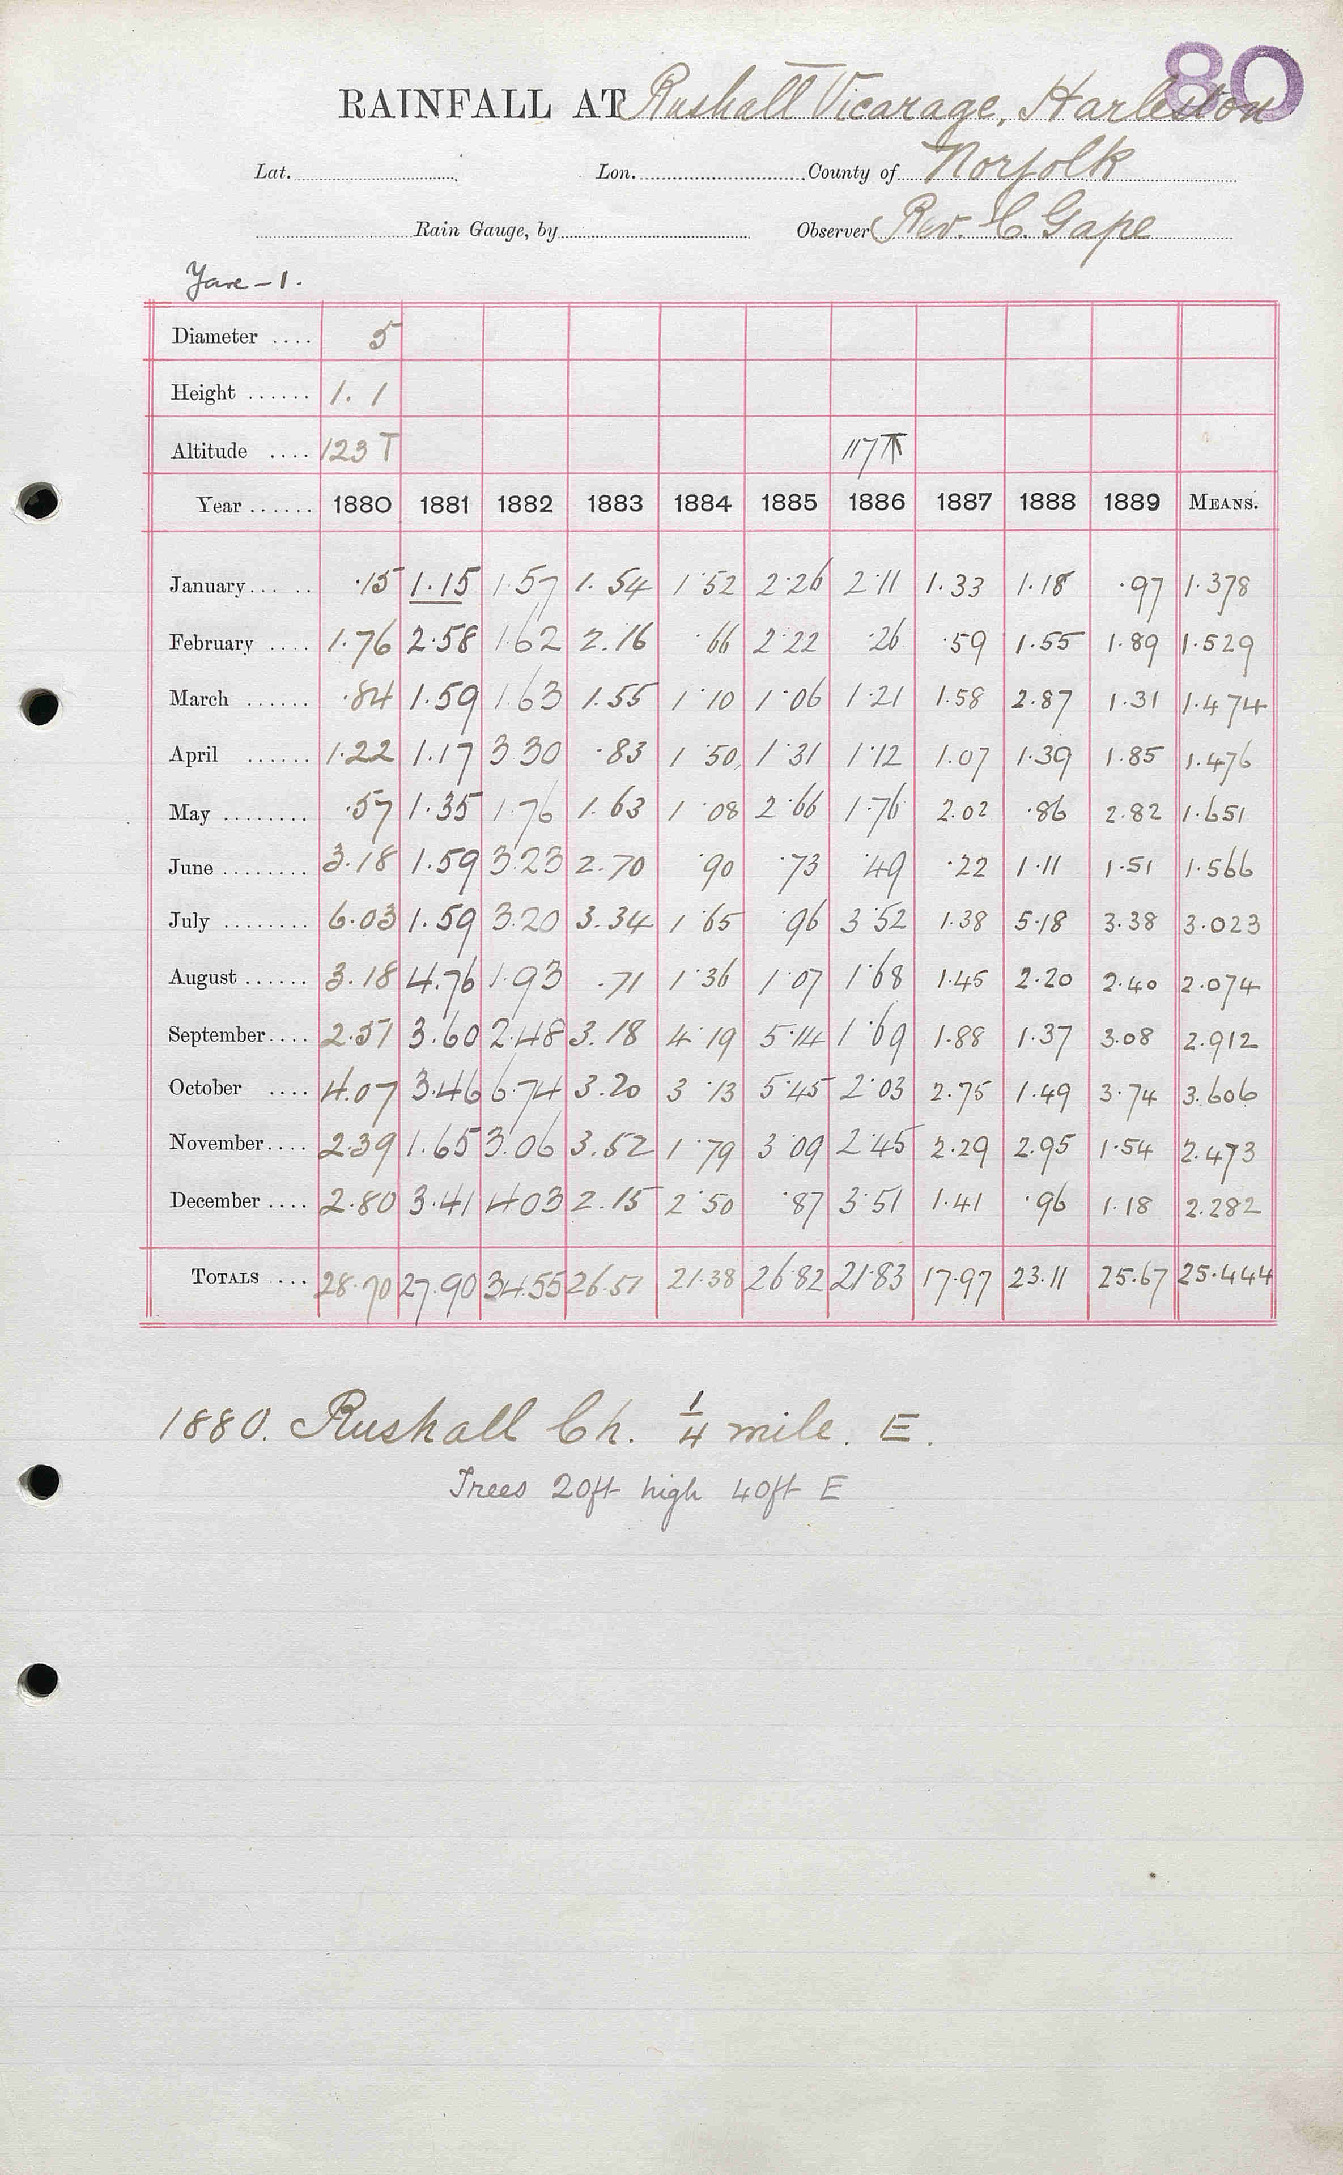 80
RAINFALL AT Rushall Vicarage, Harleston
Lat. Lon. County of Norfolk
Rain Gauge, by Observer Rev. C. Gape
Yare - 1.
Diameter .... 5
Height ...... 1. 1
Altitude .... 123 T 117 T
Year ...... 1880 1881 1882 1883 1884 1885 1886 1887 1888 1889 MEANS.
January ... .. ·15 1·15 1·57 1·54 1·52 2·26 2·11 1·33 1·18 ·97 1·378
February .... 1·76 2·58 1·62 2·16 ·66 2·22 ·26 ·59 1·55 1·89 1·529
March ...... ·84 1·59 1·63 1·55 1·10 1·06 1·21 1·58 2·87 1·31 1·474
April ...... 1·22 1·17 3·30 ·83 1·50 1·31 1·12 1·07 1·39 1·85 1·476
May ........ ·57 1·35 1·76 1·63 1·08 2·66 1·76 2·02 ·86 2·82 1·651
June ........ 3·18 1·59 3·23 2·70 ·90 ·73 ·49 ·22 1·11 1·51 1·566
July ........ 6·03 1·59 3·20 3·34 1·65 ·96 3·52 1·38 5·18 3·38 3·023
August ...... 3·18 4·76 1·93 ·71 1·36 1·07 1·68 1·45 2·20 2·40 2·074
September .... 2·51 3·60 2·48 3·18 4·19 5·14 1·69 1·88 1·37 3·08 2·912
October .... 4·07 3·46 6·74 3·20 3·13 5·45 2·03 2·75 1·49 3·74 3·606
November .... 2·39 1·65 3·06 3·52 1·79 3·09 2·45 2·29 2·95 1·54 2·473
December .... 2·80 3·41 4·03 2·15 2·50 ·87 3·51 1·41 ·96 1·18 2·282
TOTALS ... 28·70 27·90 34·55 26·51 21·38 26·82 21·83 17·97 23·11 25·67 25·444
1880. Rushall Ch. 1/4 mile. E.
Trees 20ft high 40ft E